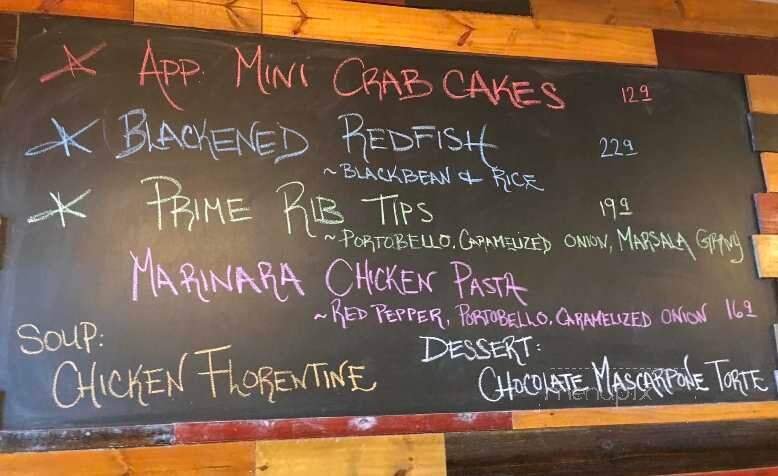 APP. MINI CRAB CAKES 12 9
BLACKENED REDFISH 22 9
~BLACKBEAN & RICE
PRIME RIB TIPS 19 9
~PORTOBELLO, CARAMELIZED ONION, MARSALA GRAVY
MARINARA CHICKEN PASTA
~RED PEPPER, PORTOBELLO, CARAMELIZED ONION 16 9
SOUP:
CHICKEN FLORENTINE
DESSERT:
CHOCOLATE MASCARPONE TORTE
menupix